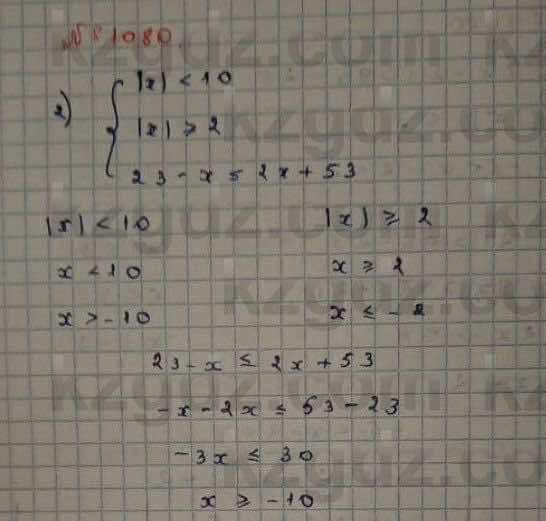 № 1080.
2) { |x| < 10
|x| ≥ 2
23 - x ≤ 2x + 53
|x| < 10 |x| ≥ 2
x < 10 x ≥ 2
x > -10 x ≤ -2
23 - x ≤ 2x + 53
-x - 2x ≤ 53 - 23
-3x ≤ 30
x ≥ -10
kzguz.com